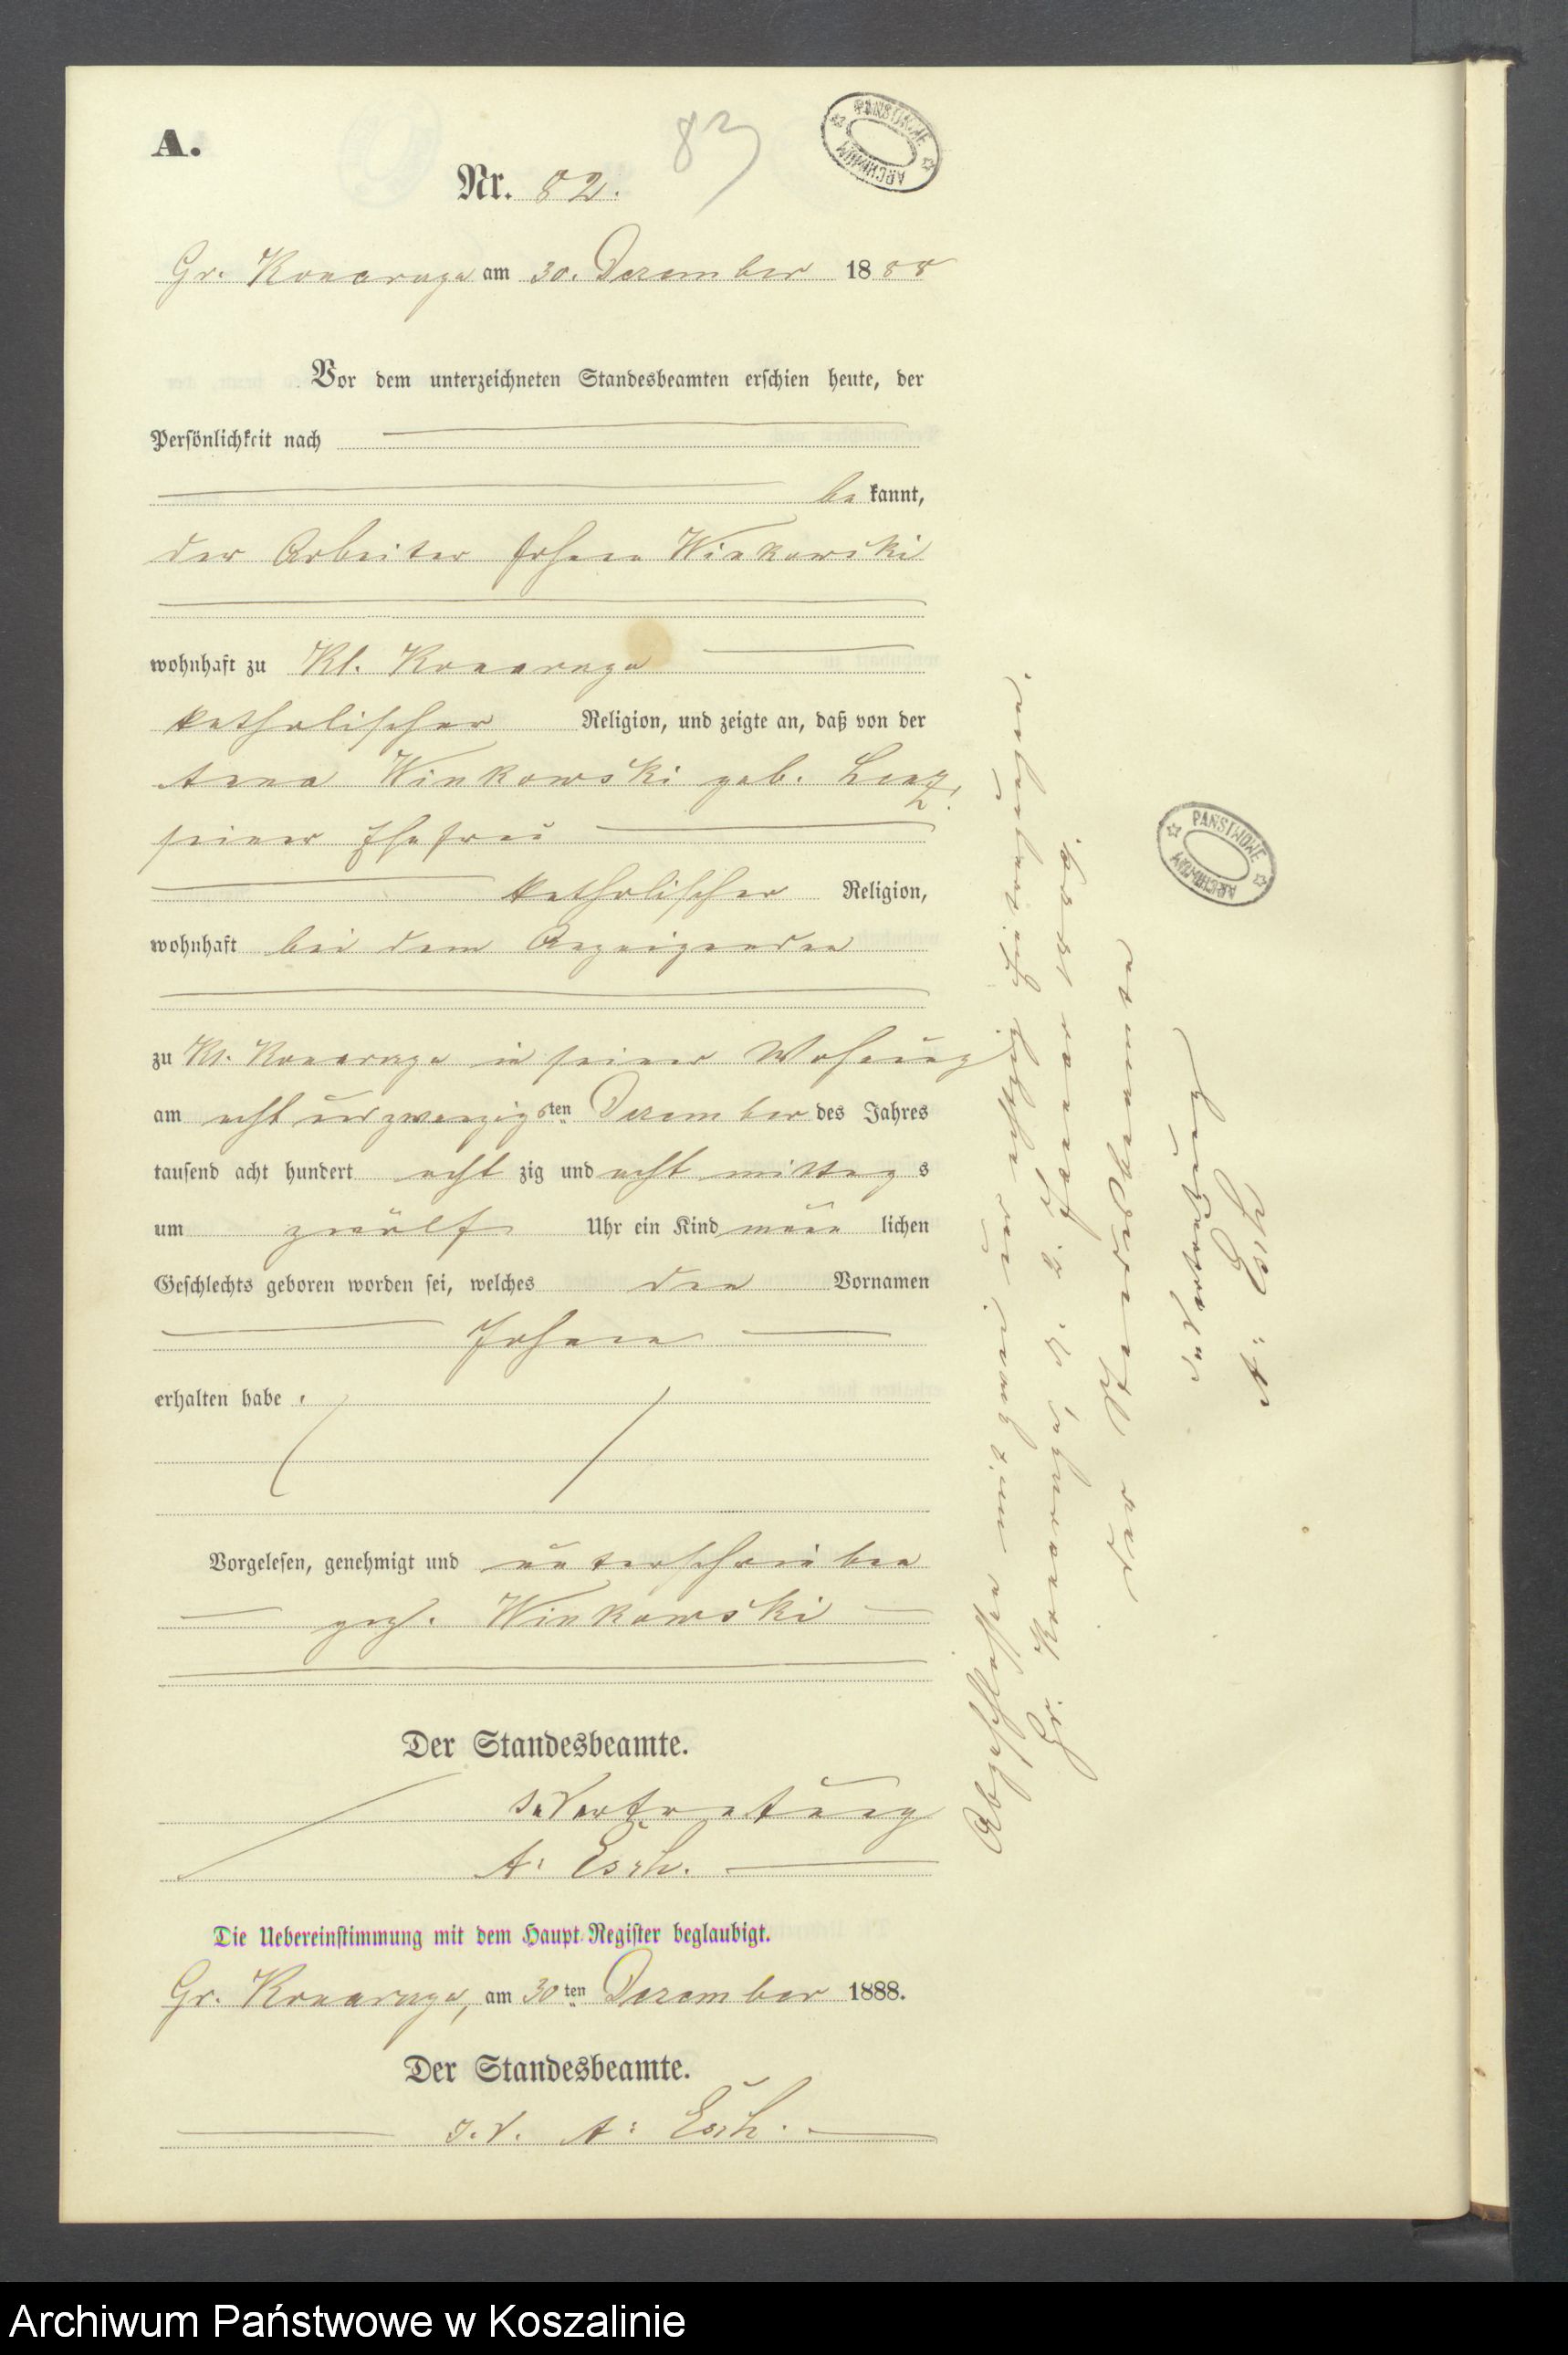 A.
83
PAŃSTWOWE ARCHIWUM
Nr. 82.
Gr. Konarczyn am 30. Dezember 1888
Vor dem unterzeichneten Standesbeamten erschien heute, der
Persönlichkeit nach
be kannt,
der Arbeiter Johann Winkowski
wohnhaft zu Kl. Konarczyn
katholischer Religion, und zeigte an, daß von der
Anna Winkowski geb.
seiner Ehefrau
katholischer Religion,
wohnhaft bei dem Anzeigenden
zu Kl. Konarczyn in seiner Wohnung
am acht und zwanzigsten Dezember des Jahres
tausend acht hundert acht zig und acht mittag s
um zwölf Uhr ein Kind männ lichen
Geschlechts geboren worden sei, welches den Vornamen
Johann
erhalten habe.
Vorgelesen, genehmigt und unterschrieben
gez. Winkowski
Der Standesbeamte.
In Vertretung
A: Esch.
Die Uebereinstimmung mit dem Haupt-Register beglaubigt.
Gr. Konarczyn, am 30ten Dezember 1888.
Der Standesbeamte.
I. V. A: Esch.
Abgeschlossen mit zwei und achtzig Eintragungen.
Gr. Konarczyn, d. 2. Januar 1889.
der Standesbeamte
in Vertretung
A: Esch
PAŃSTWOWE ARCHIWUM
Archiwum Państwowe w Koszalinie